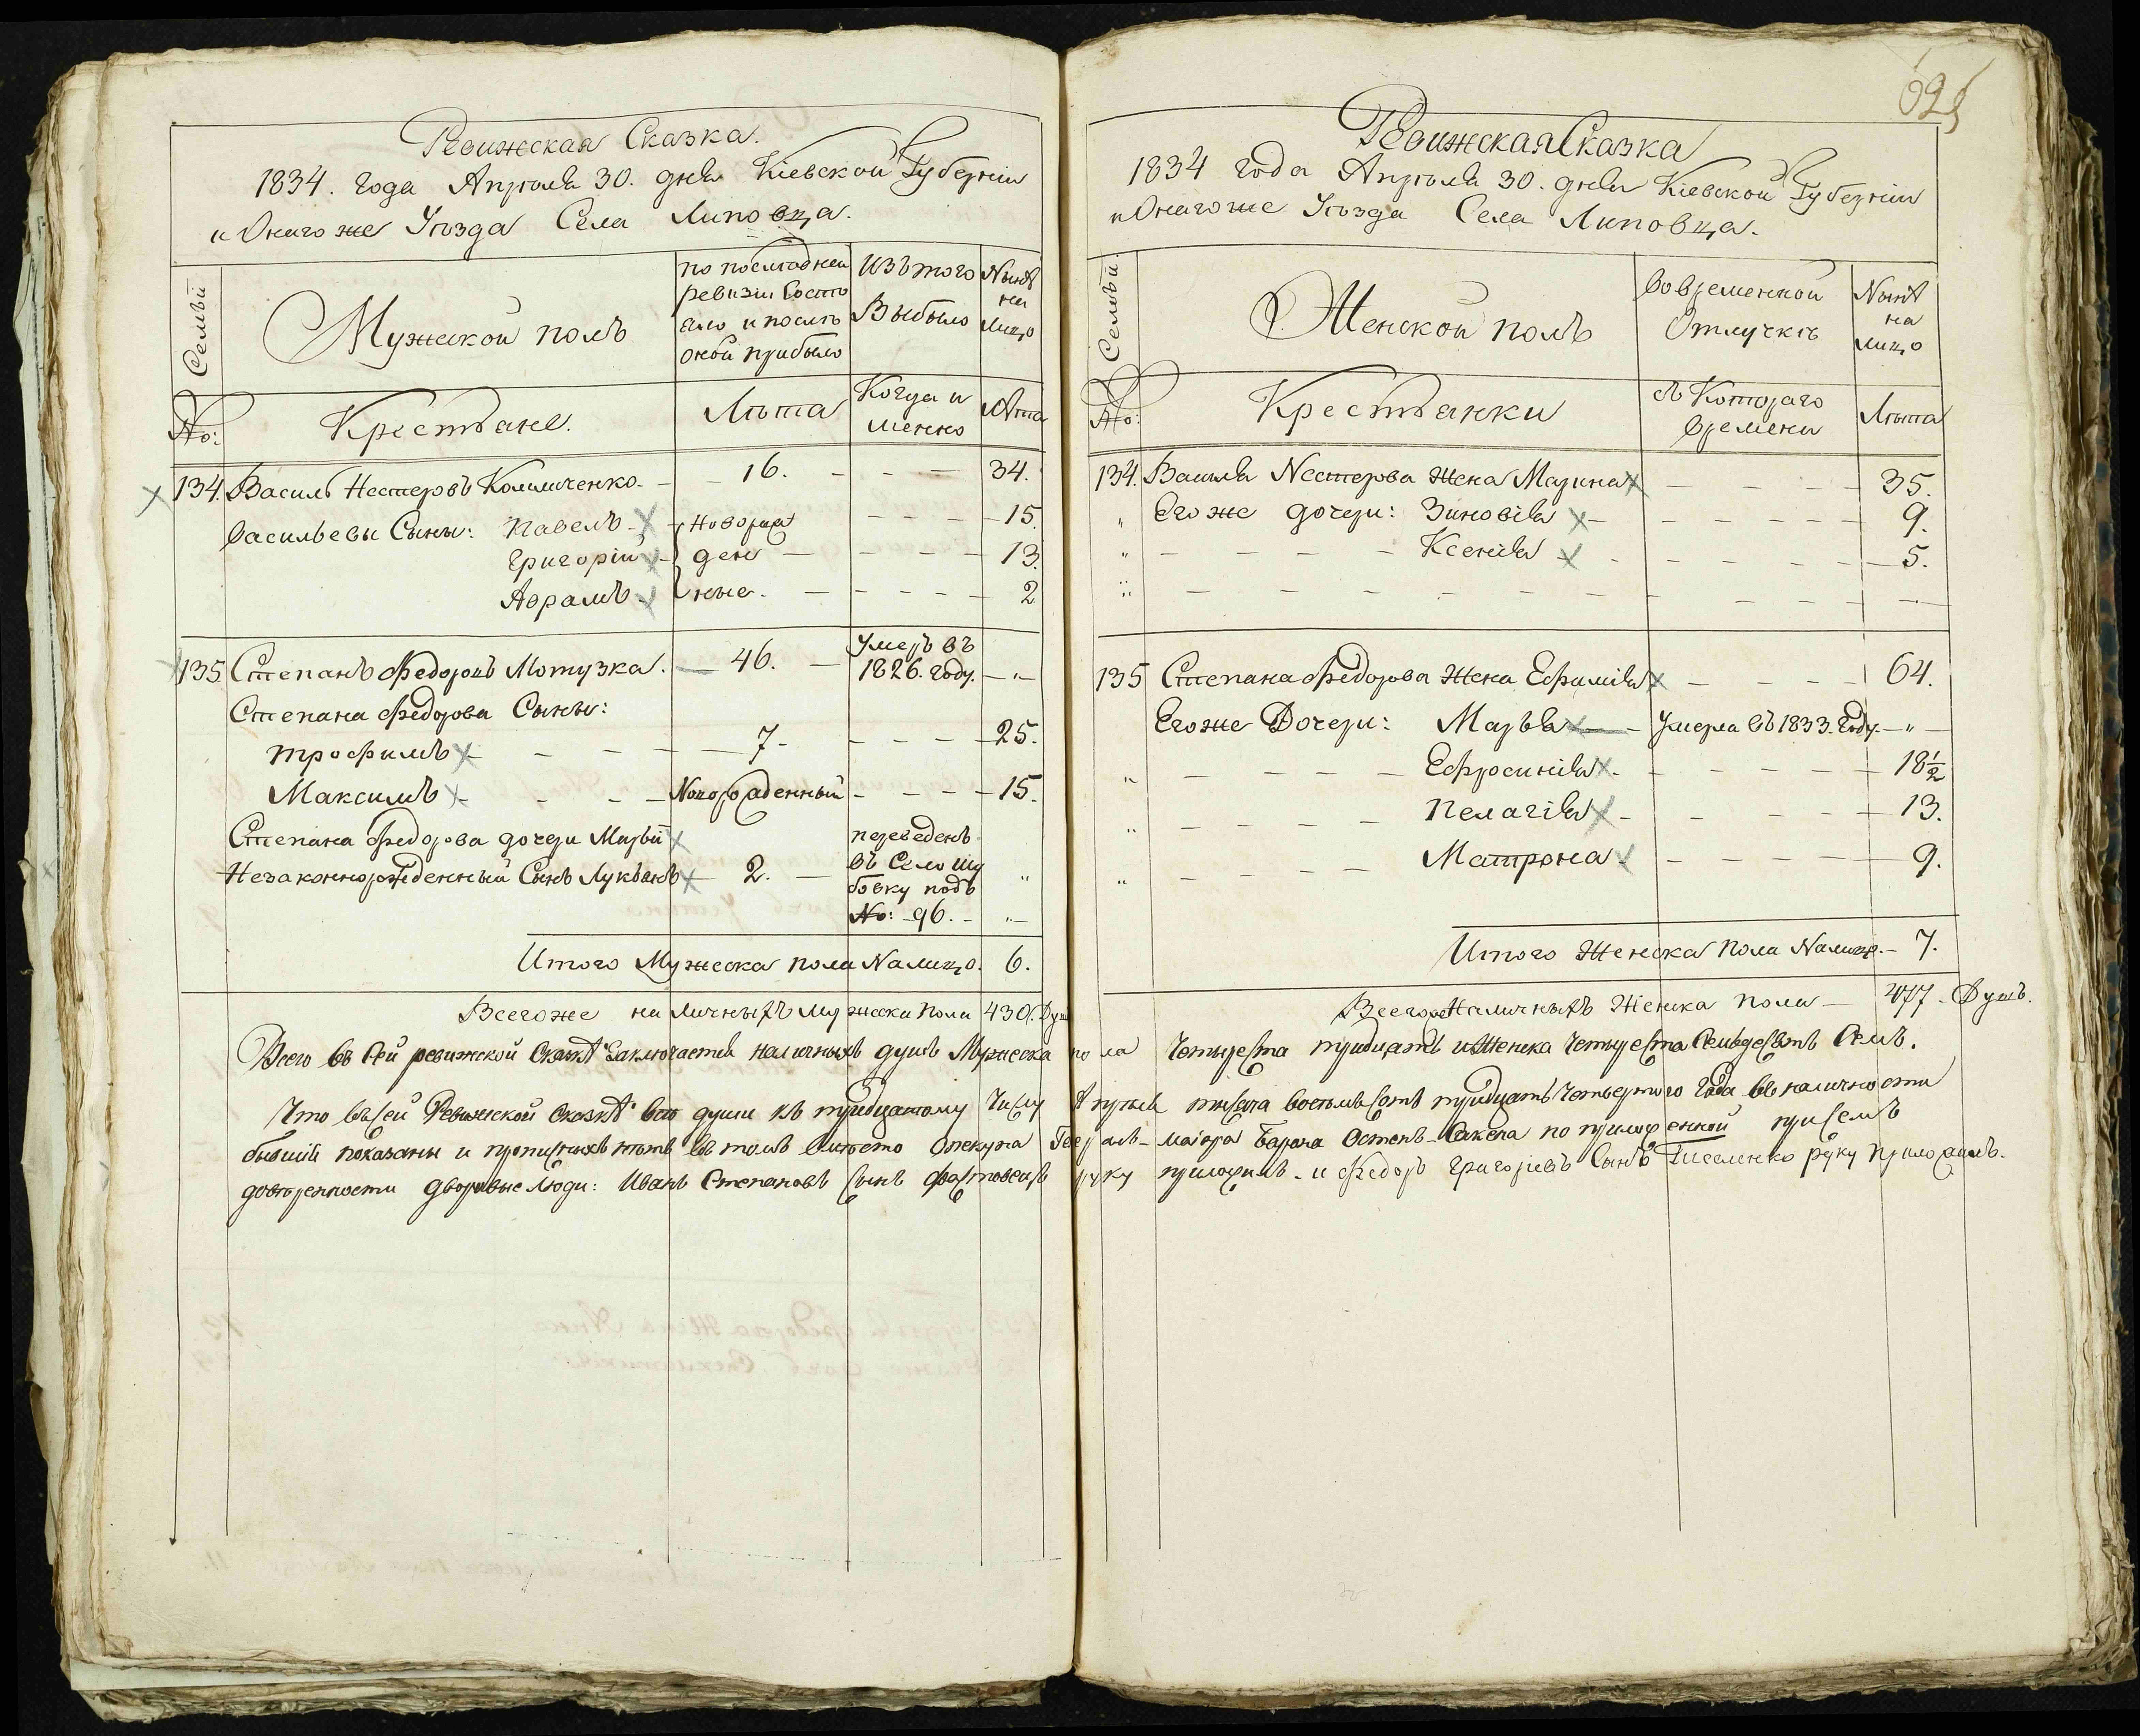 Ревижская Сказка.
1834. года Апрѣля 30. дня Кіевской Губерніи
и Онаго же Уѣзда Села Липовца.
Семьи
Мужеской полъ
по послѣдней
ревизіи состо
яло и послѣ
оной прибыло
Изъ того
Выбыло
Нынѣ
на
лицо
№:
Крестьяне.
Лѣта
Когда и
менно
Лѣта
134. Василь Нестеровъ Колиниченко. - 16. - - - 34.
Васильевы Сыны: Павелъ - Новорож - - - 15.
Григорій - ден - - - 13.
Аврамъ - ные. - - - 2
135. Степанъ Федоровъ Мотузка. - 46. - Умеръ въ
1826. году. - „ -
Степана Федорова Сыны:
Трофимъ - - - 7 - - - - 25.
Максимъ - - - Новорожденный - - - 15.
Степана Федорова дочери Марьи
Незаконнорожденный Сынъ Лукьянъ - 2. -
переведенъ
въ Село Шу
бовку подъ „
№: 96. - „ -
Итого Мужеска пола Налицо. 6.
Всего же наличныхъ мужеска пола 430. Душ
Ревижская Сказка
1834 года Апрѣля 30. дня Кіевской Губерніи
и Онагоже Уѣзда Села Липовца.
Семьи
Женской полъ
Во временной
Отлучкѣ
Нынѣ
на
лицо
№:
Крестьянки
съ Котораго
времени
Лѣта
134. Василя Нестерова жена Марина - - - 35.
„ Его же дочери: Зиновія - - - 9.
„ - - - Ксенія - - - 5.
„ - - - - - -
135 Степана Федорова жена Ефимія - - - 64.
Его же Дочери: Марья - Умерла въ 1833. году. - „ -
„ - - - Ефросинія - - - 18½
„ - - - Пелагія - - - 13.
„ - - - Матрона - - - 9.
Итого Женска Пола Налицо. - 7.
Всего же Наличныхъ Женска пола - 477 - Душъ.
Всего въ сей ревижской Сказкѣ Заключается наличныхъ душъ Мужеска пола Четыреста тридцать и Женска Четыреста Семьдесятъ Семь.
Что въ сей Ревижской Сказкѣ всѣ души къ тридцатому Числу Апрѣля тысяча восемьсотъ тридцать Четвертого года въ наличности
бывшіи показаны и прописныхъ нѣтъ въ томъ вмѣсто Опекуна Генералъ-маіора Барона Остенъ-Сакена по приложенной при семъ
довѣренности дворовые люди: Иванъ Степановъ сынъ руку приложилъ. и Федоръ Григоріевъ Сынъ руку приложилъ.